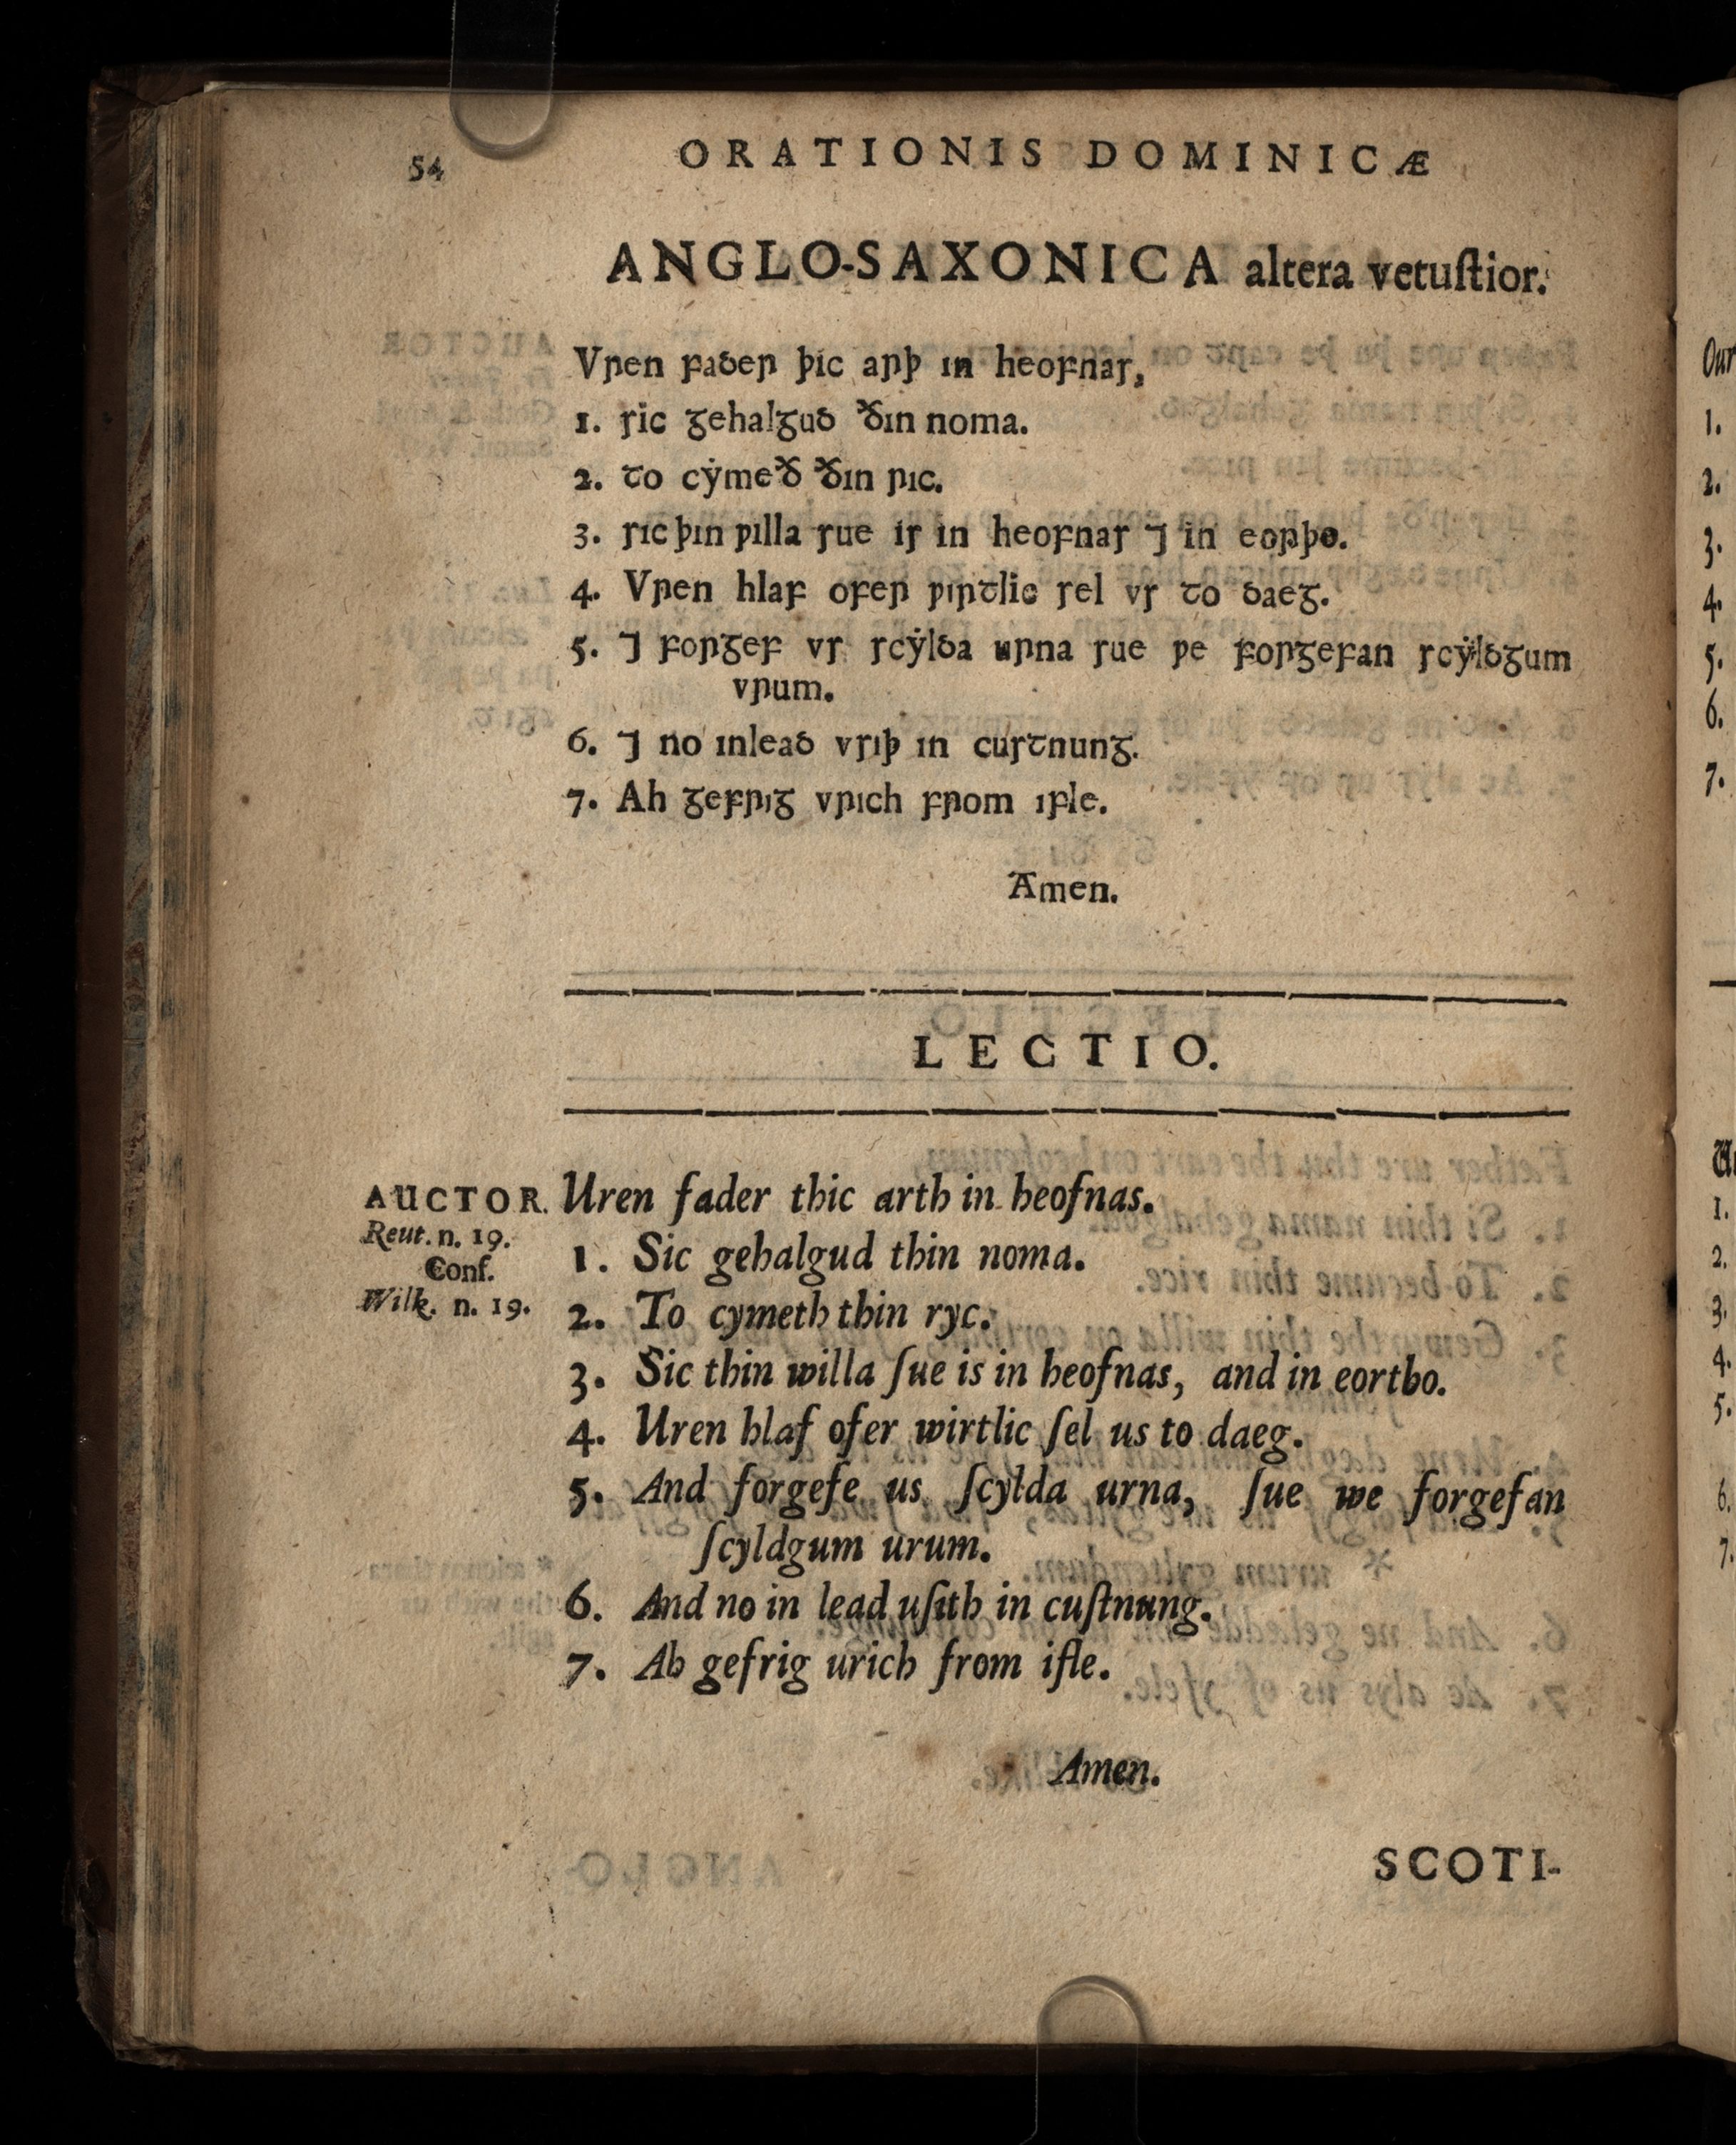 54
ORATIONIS DOMINICÆ
ANGLO-SAXONICA altera vetuſtior.
Vꞃen ꝼaꝺeꞃ þic aꞃþ ın heoꝼnaꞅ,
1. ꞅic ᵹehalᵹuꝺ ðın noma.
2. ꞇo cẏmeð ðın ꞃıc.
3. ꞅıc þın ƿılla ꞅue iꞅ in heoꝼnaꞅ ⁊ in eoꞃþo.
4. Vꞃen hlaꝼ oꝼeꞃ ƿıꞃꞇlic ꞅel vꞅ ꞇo ꝺaeᵹ.
5. ⁊ ꝼoꞃᵹeꝼ vꞅ ꞅcẏlꝺa uꞃna ꞅue ƿe ꝼoꞃᵹeꝼan ꞅcẏlꝺᵹum
vꞃum.
6. ⁊ no ınleaꝺ vꞅıþ ın cuꞅꞇnunᵹ.
7. Ah ᵹeꝼꞃıᵹ vꞃıch ꝼꞃom ıꝼle.
Amen.
LECTIO.
AUCTOR.
Reut. n. 19.
Conf.
Wilk. n. 19.
Uren fader thic arth in heofnas.
1. Sic gehalgud thin noma.
2. To cymeth thin ryc.
3. Sic thin willa ſue is in heofnas, and in eortho.
4. Uren hlaf ofer wirtlic ſel us to daeg.
5. And forgefe us ſcylda urna, ſue we forgefan
ſcyldgum urum.
6. And no in lead uſith in cuſtnung.
7. Ah gefrig urich from ifle.
Amen.
SCOTI-
Our
1.
2.
3.
4.
5.
6.
7.
1.
2.
3.
4.
5.
6.
7.